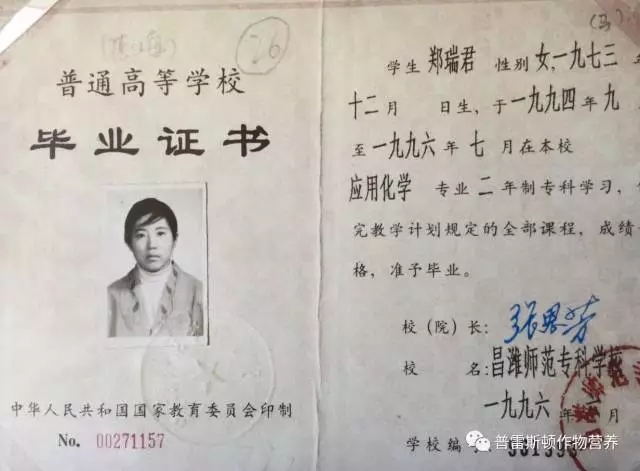 26
普通高等学校
毕业证书
中华人民共和国国家教育委员会印制
No. 00271157
学生 郑瑞君 性别 女,一九七三 年
十二月 日生,于一九九四年九
至一九九六年七月在本校
应用化学 专业二年制专科学习,
完教学计划规定的全部课程,成绩
格,准予毕业。
校(院)长:
校 名:昌潍师范专科学校
一九九六年 月
学校编号
普雷斯顿作物营养